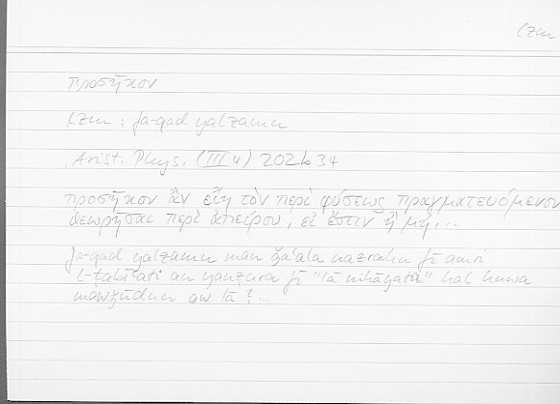 lzm
προσῆκον
lzm : fa-qad yalzamu
Arist. Phys. (III 4) 202b34
προσῆκον ἂν εἴη τὸν περὶ φύσεως πραγματευόμενον
θεωρῆσαι περὶ ἀπείρου, εἰ ἔστιν ἢ μή, ..
fa-qad yalzamu man ǧaʿala naẓrahu fī amri
l-ṭabīʿati an yanẓura fī "lā nihāyata" hal huwa
mawǧūdun aw lā? ..